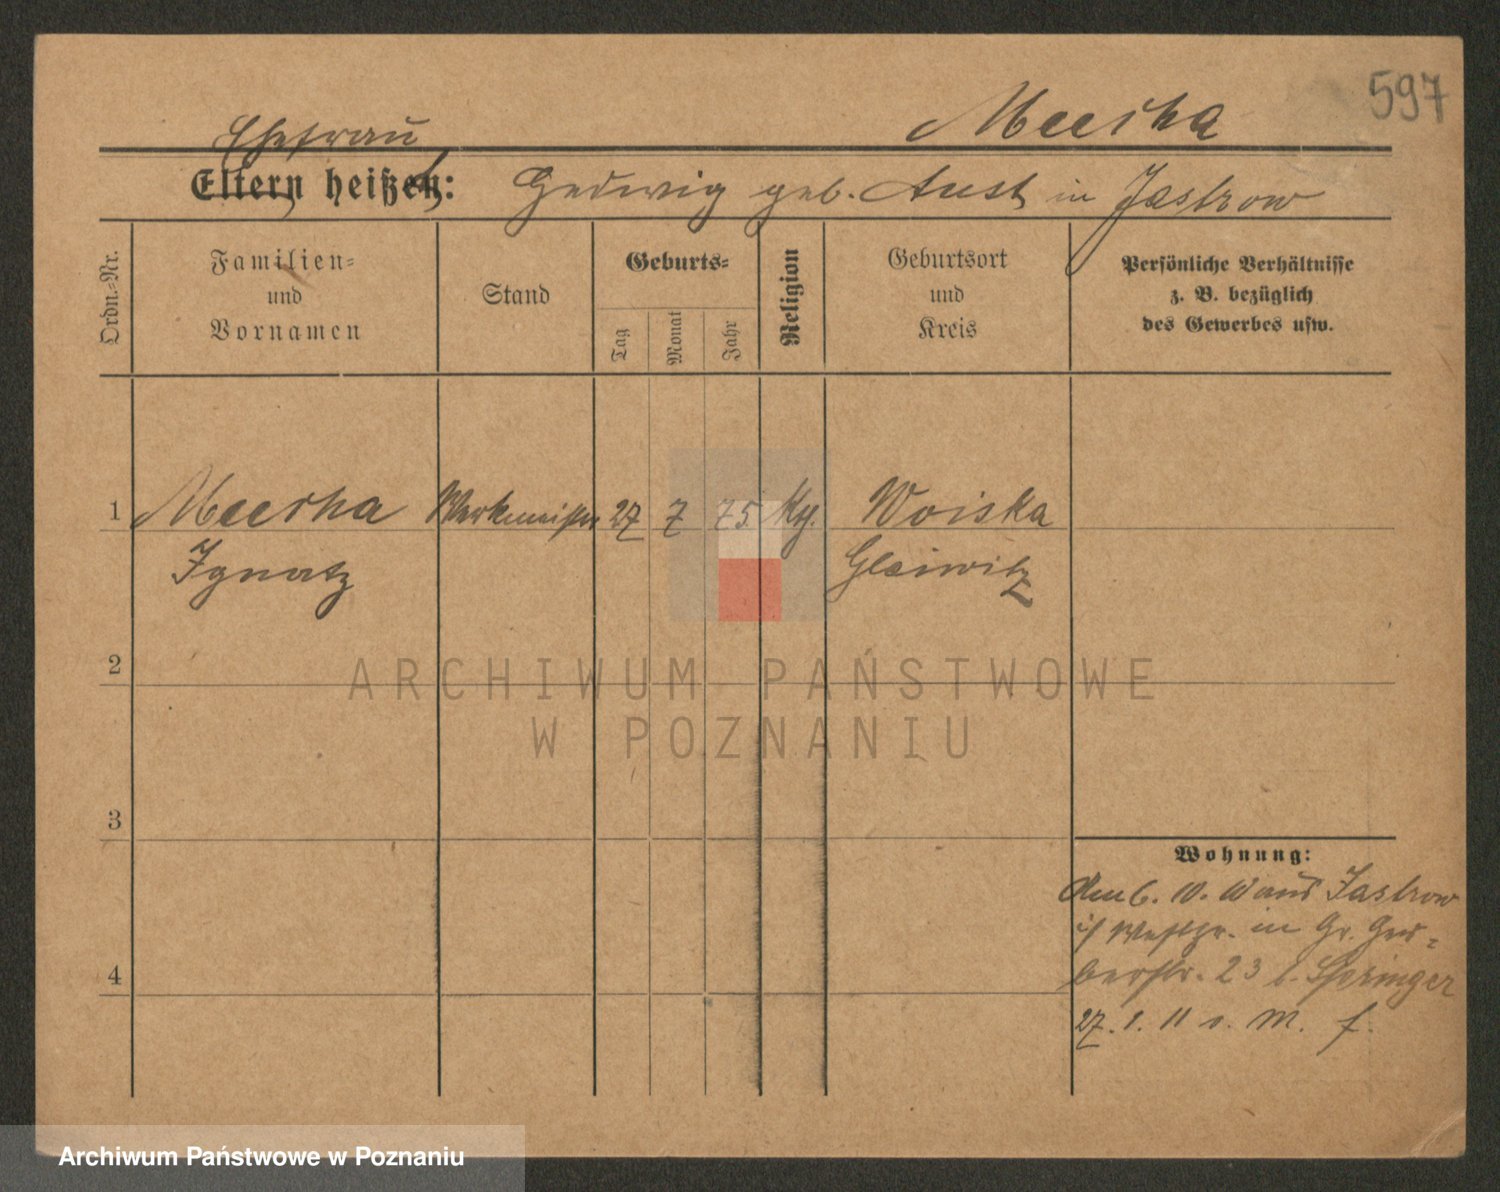 597
Meerka
Ehefrau
Eltern heißen: Hedwig geb. Aust in Jastrow
Ordn.-Nr.
Familien-
und
Vornamen
Stand
Geburts-
Tag
Monat
Jahr
Religion
Geburtsort
und
Kreis
Persönliche Verhältnisse
z. B. bezüglich
des Gewerbes usw.
1 Meerka Werkmeister 27 7 75 Woiska
Ignatz Gleiwitz
2
3
4
Wohnung:
10. aus Jastrow
Westpr. in Gr. Ger-
berstr. 23 b. Springer
27. 1. 11
ARCHIWUM PAŃSTWOWE
W POZNANIU
Archiwum Państwowe w Poznaniu